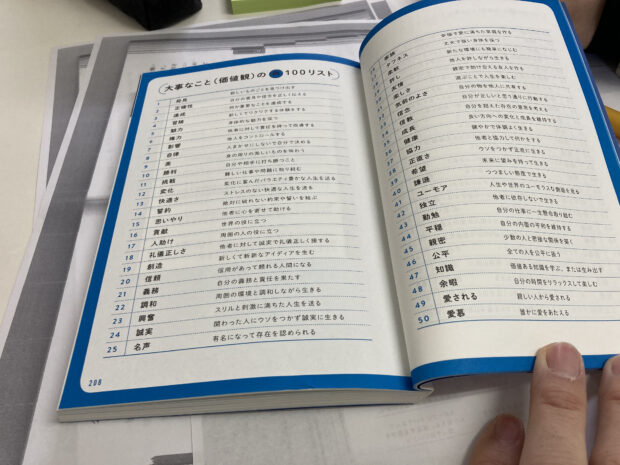 大事なこと(価値観)の 100リスト
1 発見 新しいものごとを見つけ出す
2 正確性 自分の意見や信念を正しく伝える
3 達成 何か重要なことを達成する
4 冒険 新しくてワクワクする体験をする
5 魅力 身体的な魅力を保つ
6 権力 他者に対して責任を持って指導する
7 影響 他人をコントロールする
8 自律 人まかせにしないで自分で決める
9 美 身の周りの美しいものを味わう
10 勝利 自分や相手に打ち勝つこと
11 挑戦 難しい仕事や問題に取り組む
12 変化 変化に富んだバラエティ豊かな人生を送る
13 快適さ ストレスのない快適な人生を送る
14 誓約 絶対に破れない約束や誓いを結ぶ
15 思いやり 他者に心を寄せて助ける
16 貢献 世界の役に立つ
17 人助け 周囲の人の役に立つ
18 礼儀正しさ 他者に対して誠実で礼儀正しく接する
19 創造 新しくて斬新なアイディアを生む
20 信頼 信用があって頼れる人間になる
21 義務 自分の義務と責任を果たす
22 調和 周囲の環境と調和しながら生きる
23 興奮 スリルと刺激に満ちた人生を送る
24 誠実 関わった人にウソをつかず誠実に生きる
25 名声 有名になって存在を認められる
208
幸福で愛に満ちた家庭を作る
丈夫で強い身体を保つ
柔軟 新たな環境にも簡単になじむ
許し 他人を許しながら生きる
友情 親密で助け合える友人を作る
楽しさ 遊ぶことで人生を楽しむ
気前のよさ 自分の物を他人に共有する
信念 自分が正しいと思う通りに行動する
信教 自分を超えた存在の意思を考える
成長 良い方向への変化と成長を維持する
健康 健やかで体調よく生きる
協力 他者と協力して何かをする
正直さ ウソをつかず正直に生きる
希望 未来に望みを持って生きる
謙遜 つつましい態度で生きる
ユーモア 人生や世界のユーモラスな側面を見る
41
42 独立 他者に依存しないで生きる
43 勤勉 自分の仕事に一生懸命取り組む
44 平穏 自分の内面の平和を維持する
45 親密 少数の人と密接な関係を築く
46 公平 全ての人を公平に扱う
47 知識 価値ある知識を学ぶ、または生み出す
48 余暇 自分の時間をリラックスして楽しむ
49 愛される 親しい人から愛される
50 愛慕 誰かに愛をあたえる